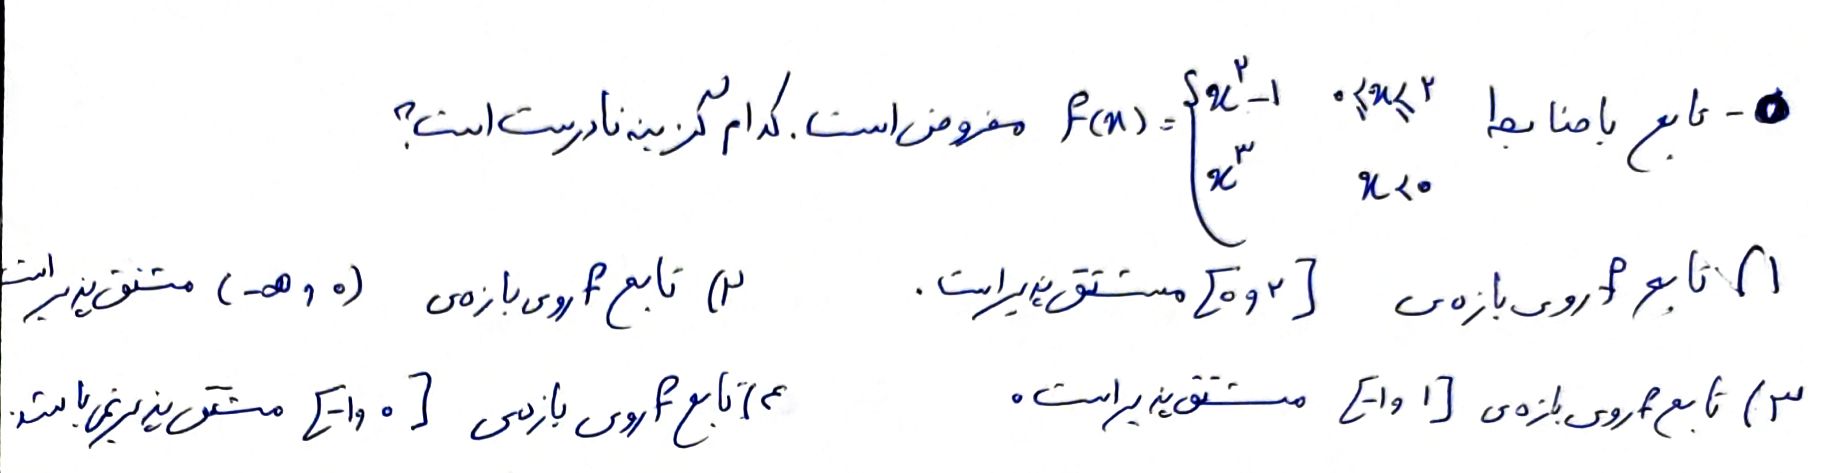 - تابع با ضابطه f(x) = { x² - ۱   ۰ ≤ x ≤ ۲ مفروض است. کدام گزینه نادرست است؟
x³   x < ۰
۱) تابع f روی بازه‌ی [۰ و ۲] مشتق پذیر است. ۲) تابع f روی بازه‌ی (-∞ و ۰) مشتق پذیر است
۳) تابع f روی بازه‌ی [-۱ و ۱] مشتق پذیر است. ۴) تابع f روی بازه‌ی [-۱ و ۰] مشتق پذیر نمی باشد.